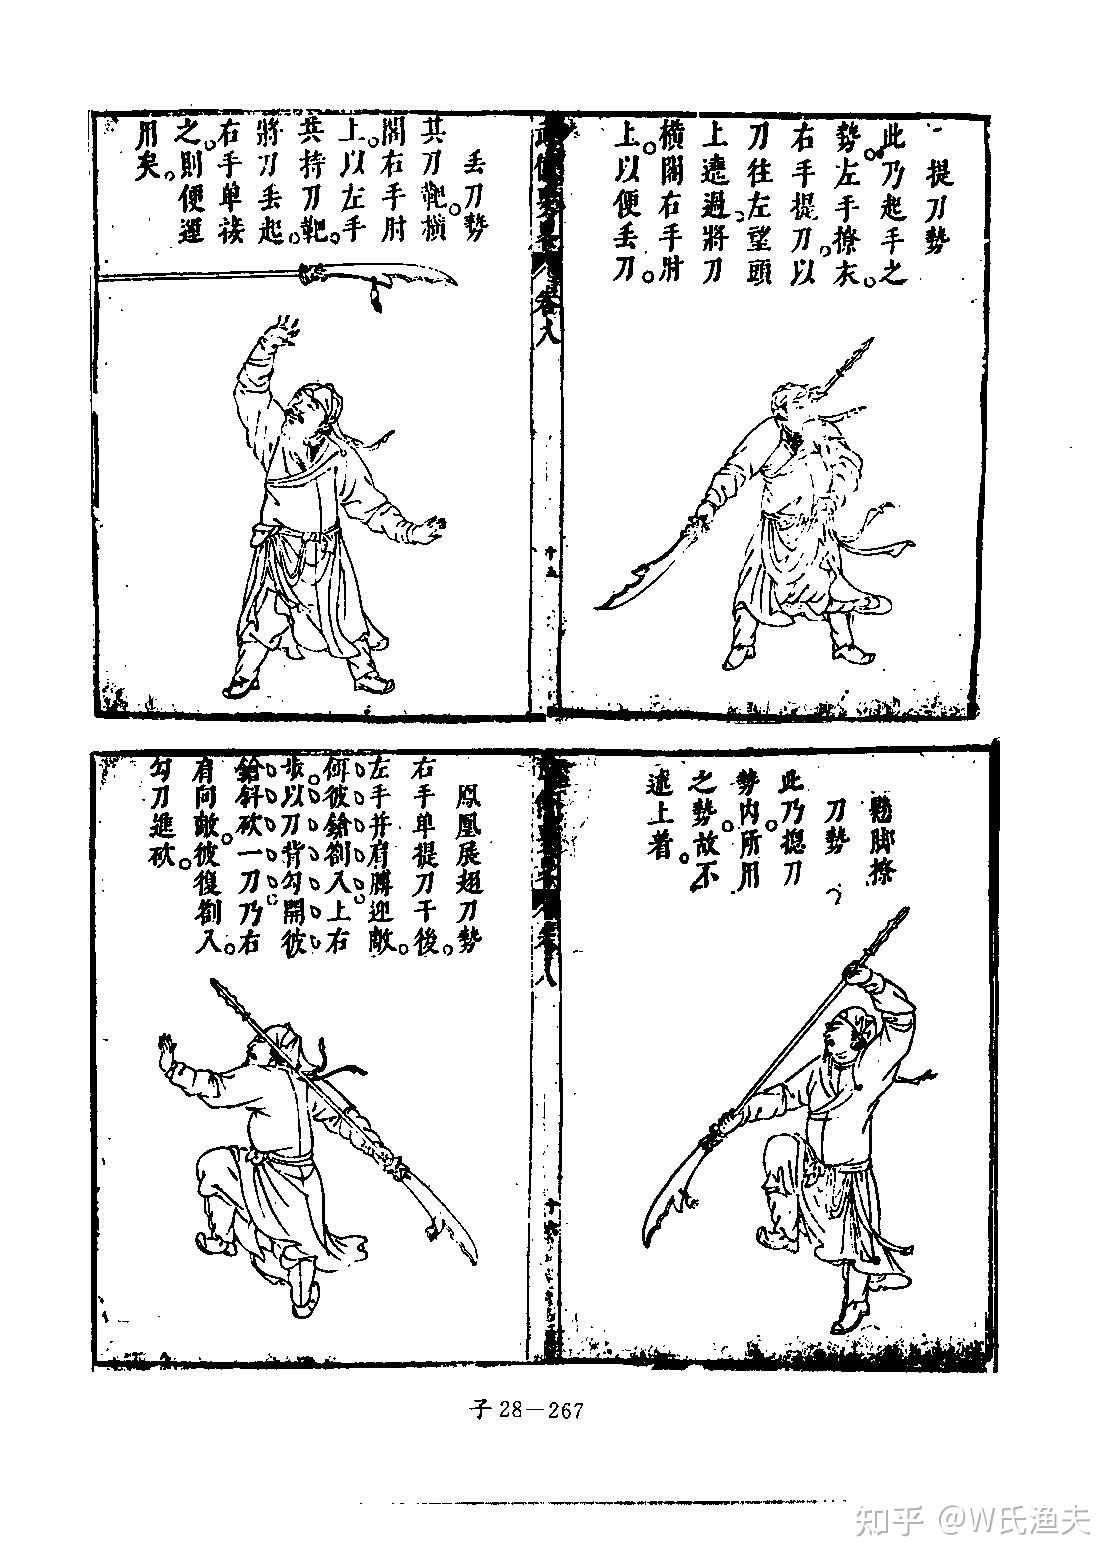 提刀勢
此乃起手之
勢。左手撩衣。
右手提刀。以
刀往左望頭
上遶過。將刀
橫閣右手肘
上。以便丢刀。
丢刀勢
其刀靶。橫
閣右手肘
上。以左手
共持刀靶。
將刀丢起。
右手单接
之。則便運
用矣。
卷八
十五
懸脚撩
刀勢
此乃摠刀
勢内。所用
之勢。故不
遠上着。
鳳凰展翅刀勢
右手单提刀于後。
左手并肩膊迎敵。
何彼鎗劄入上右
步。以刀背勾開彼
鎗斜砍一刀乃右
肩向敵。彼復劄入。
勾刀進砍。
卷八
子28－267
知乎 @W氏渔夫